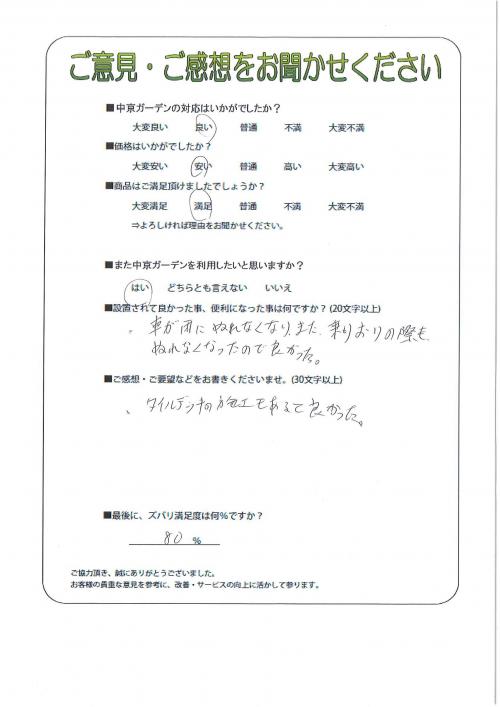 ご意見・ご感想をお聞かせください
■中京ガーデンの対応はいかがでしたか？
大変良い 良い 普通 不満 大変不満
■価格はいかがでしたか？
大変安い 安い 普通 高い 大変高い
■商品はご満足頂けましたでしょうか？
大変満足 満足 普通 不満 大変不満
⇒よろしければ理由をお聞かせください。
■また中京ガーデンを利用したいと思いますか？
はい どちらとも言えない いいえ
■設置されて良かった事、便利になった事は何ですか？(20文字以上)
、車が雨にぬれなくなり、また、乗りおりの際も、
ぬれなくなったので良かった。
■ご感想・ご要望などをお書きくださいませ。(30文字以上)
、タイルデッキの施工も 良かった。
■最後に、ズバリ満足度は何％ですか？
80 ％
ご協力頂き、誠にありがとうございました。
お客様の貴重な意見を参考に、改善・サービスの向上に活かして参ります。